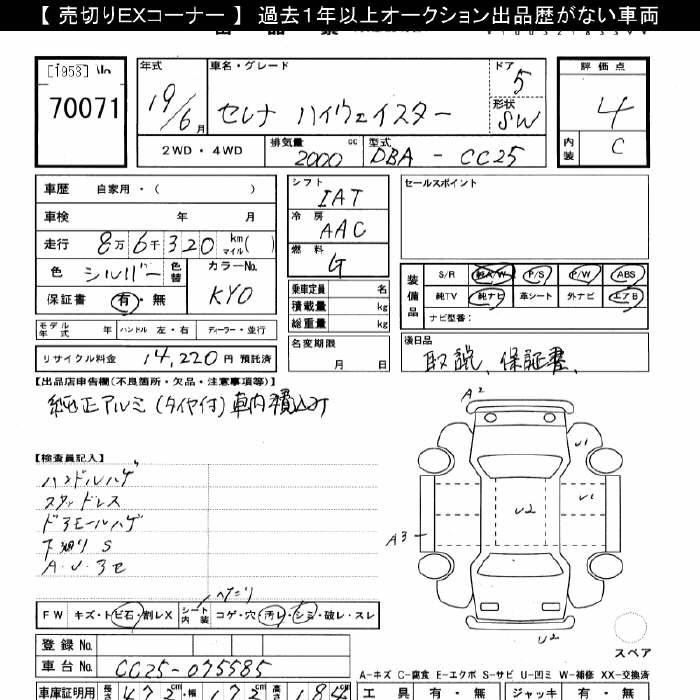 【 売切りEXコーナー 】 過去1年以上オークション出品歴がない車両
[1953] No
70071
年式
19/6月
車名・グレード
セレナ ハイウェイスター
ドア
5
形状
SW
評価点
4
内装
C
2WD・4WD
排気量
2000
cc
型式
DBA - CC25
車歴 自家用・( )
車検 年 月
走行 8万6千320 km マイル( )
色 シルバー 色替
カラーNo.
KY0
保証書 有・無
モデル年式 年 ハンドル 左・右 ディーラー・並行
リサイクル料金 14,220円 預託済
シフト
IAT
冷房
AAC
燃料
G
乗車定員 名
積載量 kg
総重量 kg
名変期限
月 日
セールスポイント
装備品
S/R 純A/W P/S P/W ABS
純TV 純ナビ 革シート 外ナビ エアB
ナビ型番:
後日品
取説、保証書、
【出品店申告欄(不良箇所・欠品・注意事項等)】
純正アルミ(タイヤ付)車内積込み
【検査員記入】
ハンドルハゲ
スタッドレス
ドアモールハゲ
下廻りS
A.U.3セ
ヘこり
FW キズ・トビ石・割レX シート内装 コゲ・穴・汚レ・シミ・破レ・スレ
A2
U1
U1
U2
A3
U2
スペア
登録No.
車台No. CC25-075585
A-キズ C-腐食 E-エクボ S-サビ U-凹ミ W-補修 XX-交換済
車庫証明用 長さ 472cm 幅 172cm 高さ 184cm
工具 有・無 ジャッキ 有・無